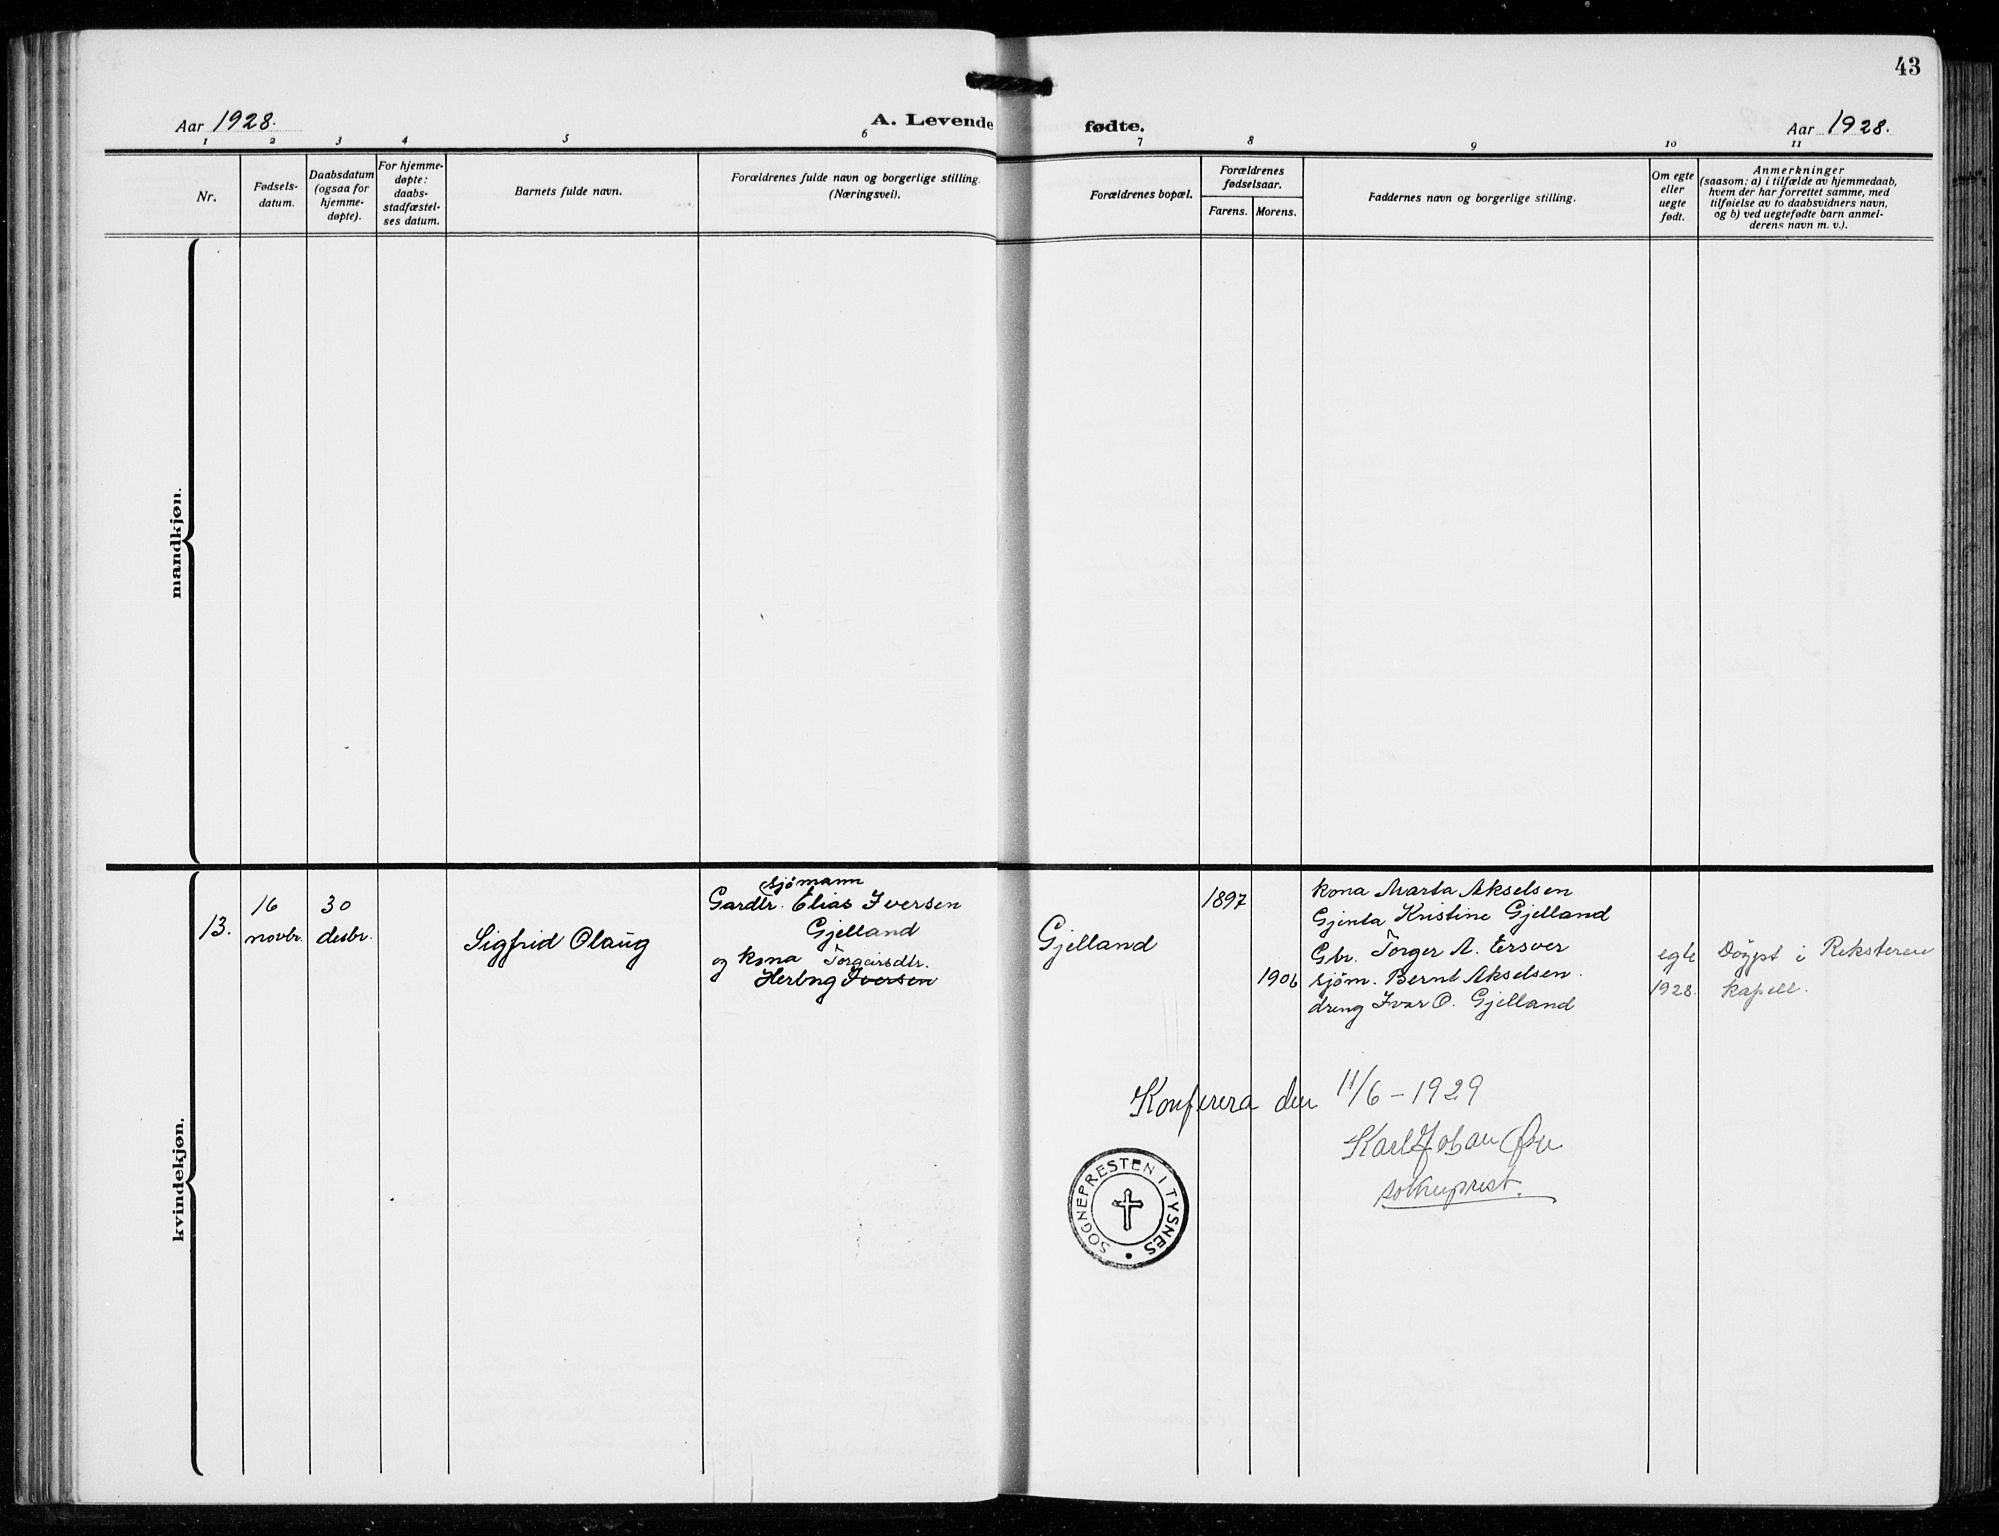 43
Aar 1928.
A. Levende fødte.
Aar 1928.
1 2 3 4 5 6 7 8 9 10 11
Nr.
Fødsels-
datum.
Daabsdatum
(ogsaa for
hjemme-
døpte).
For hjemme-
døpte:
daabs-
stadfæstel-
ses datum.
Barnets fulde navn.
Forældrenes fulde navn og borgerlige stilling.
(Næringsvei).
Forældrenes bopæl.
Forældrenes
fødselsaar.
Farens. Morens.
Faddernes navn og borgerlige stilling.
Om egte
eller
uegte
født.
Anmerkninger
(saasom: a) i tilfælde av hjemmedaab,
hvem der har forrettet samme, med
tilføielse av to daabsvidners navn,
og b) ved uegtefødte barn anmel-
derens navn m. v.).
mandkjøn.
kvindekjøn.
13.
16
novbr.
30
desbr.
Sigfrid Olaug
sjömann
Gardbr. Elias Iversen
Gjelland
og kona Torgeirsdtr.
Herborg Iversen
Gjelland
1897
1906
kona Marta Akselsen
Gjenta Kristine Gjelland
Gbr. Torger A. Ersver
sjöm. Bernt Akselsen.
dreng Ivar O. Gjelland
egte
1928.
Döypt i Reksteren
kapell.
Konferera den 11/6-1929
Karl Johan
sokneprest.
SOGNEPRESTEN I TYSNES